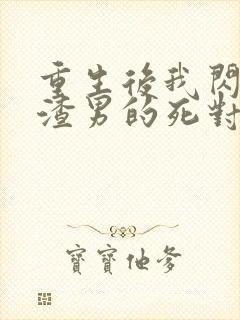 重生後我閃
渣男的死對
寶寶他爹